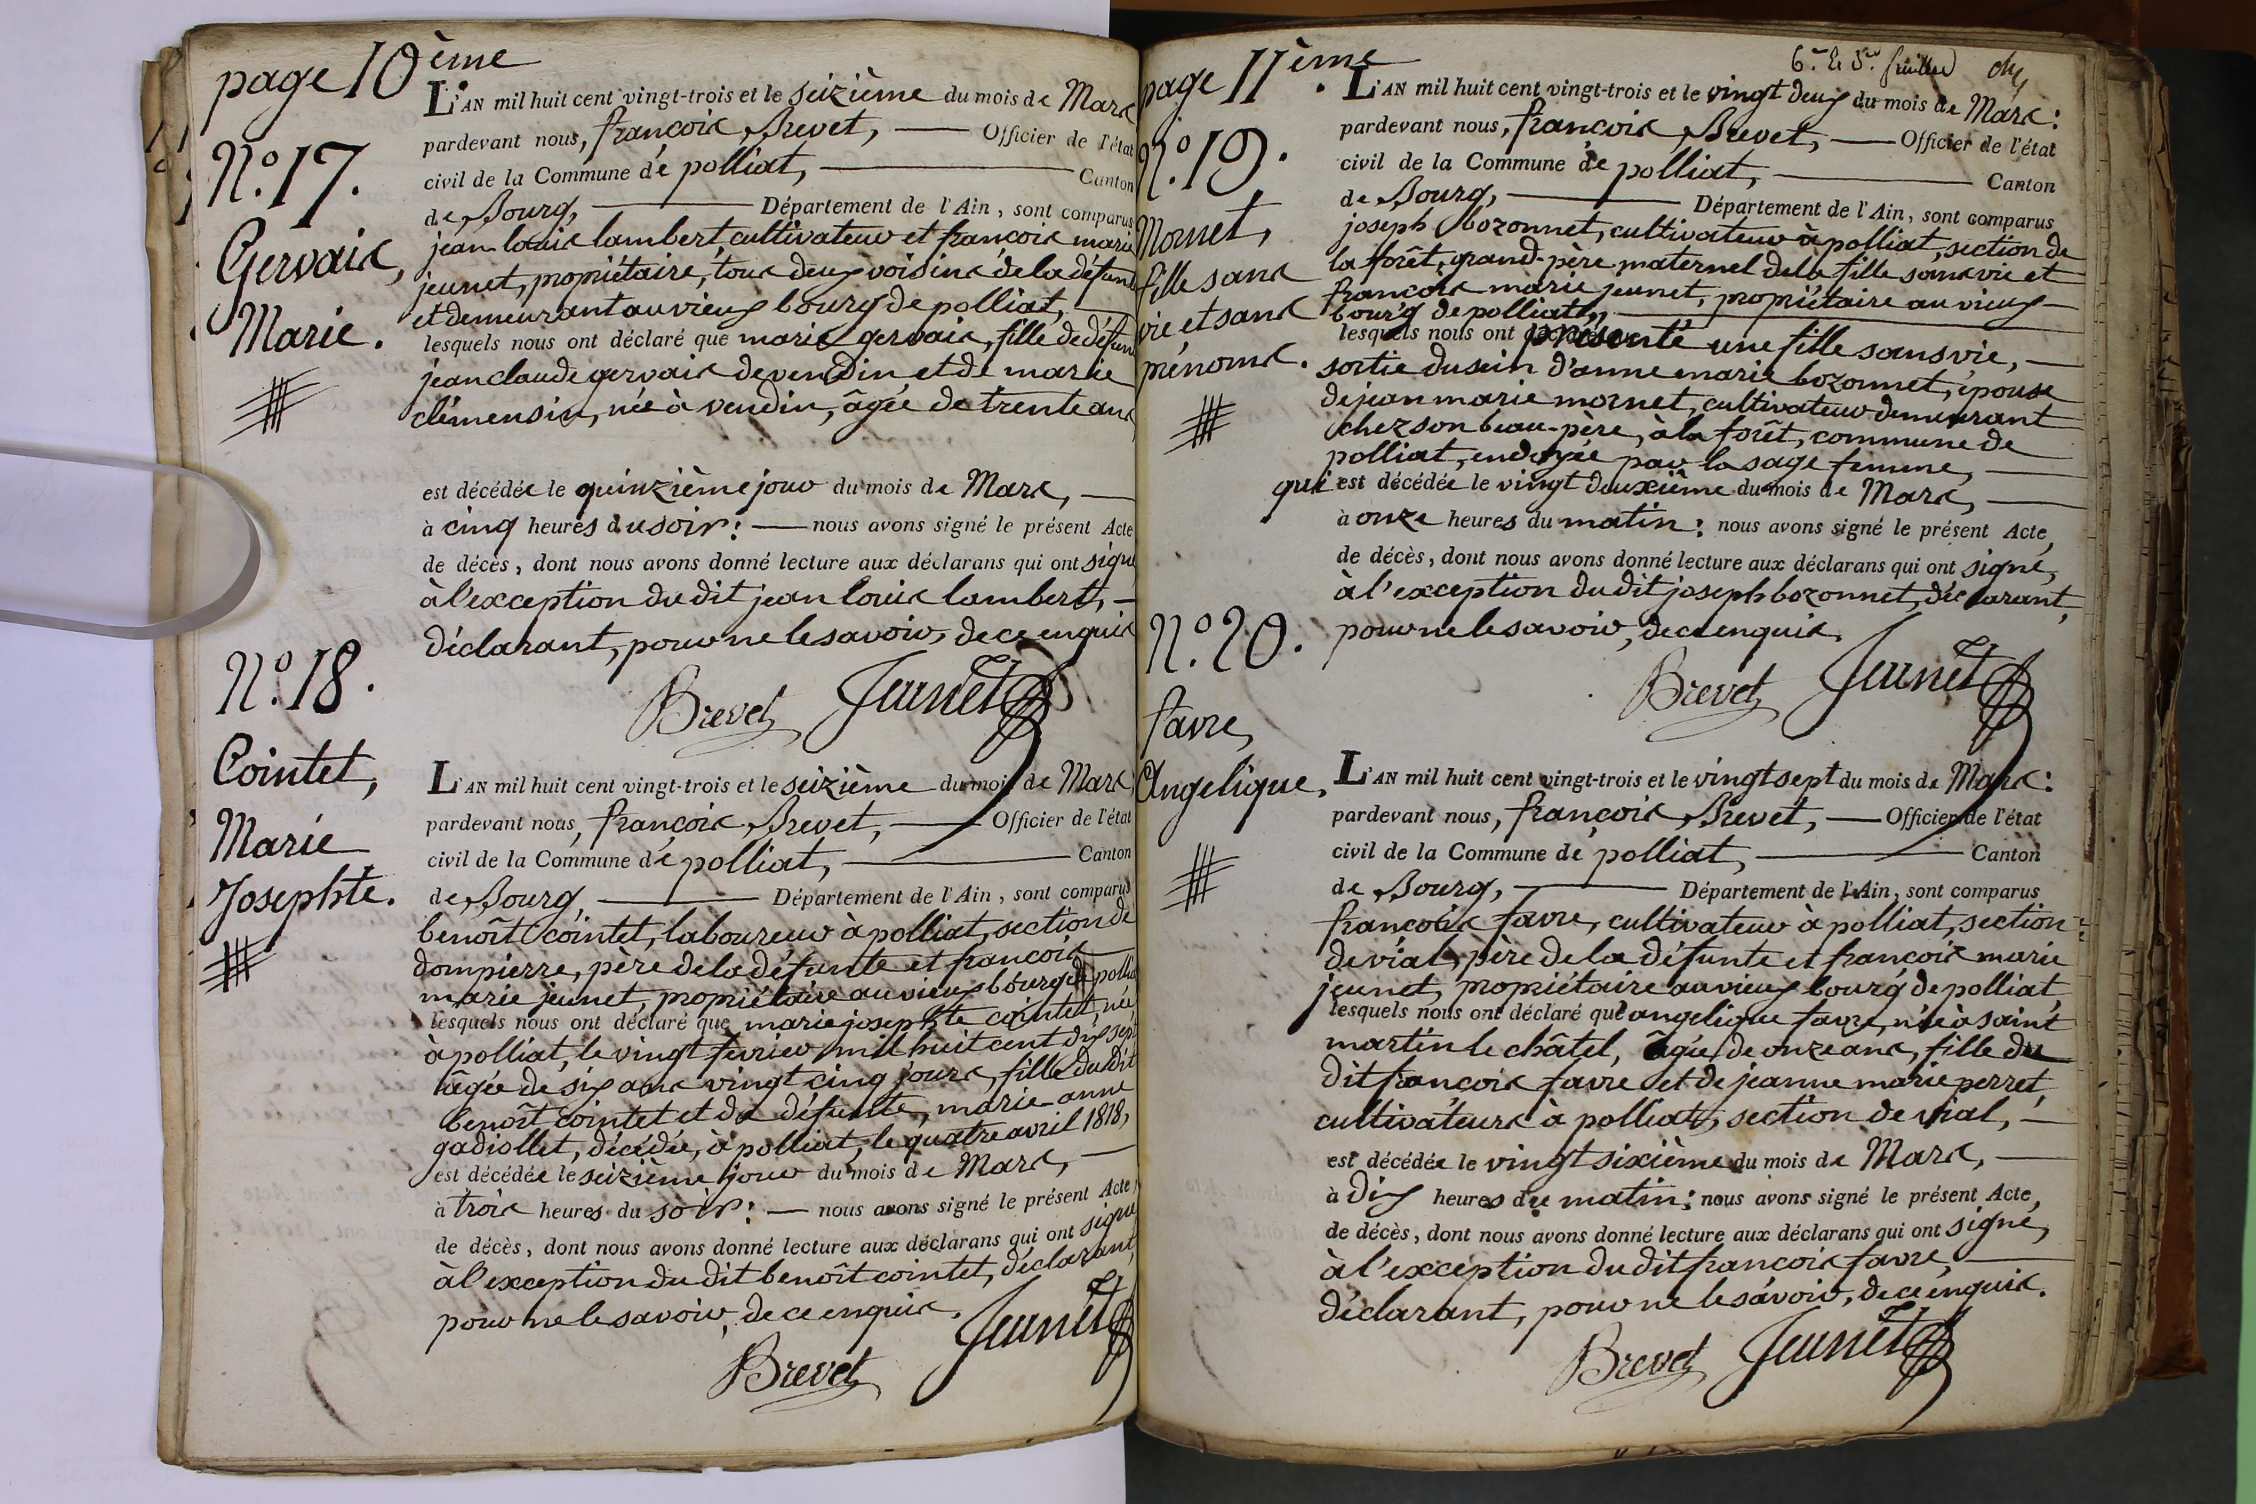 page 10ème
N.o 17.
Gervais,
Marie.
L'AN mil huit cent vingt-trois et le seizième du mois de Mars
pardevant nous, françois Brevet, — Officier de l'état
civil de la Commune de polliat, — Canton
de Bourg, — Département de l'Ain, sont comparus
jean louis lambert, cultivateur et françois marie
jeunet, propriétaire, tous deux voisins de la défunte
et demeurant au vieux bourg de polliat,
lesquels nous ont déclaré que marie gervais, fille de défunt
jean claude gervais de vendin et de marie
clémensin, née à vendin, âgée de trente ans
est décédée le quinzième jour du mois de Mars, —
à cinq heures du soir: — nous avons signé le présent Acte
de décès, dont nous avons donné lecture aux déclarans qui ont signé
à l'exception du dit jean louis lambert, —
déclarant, pour ne le savoir, de ce enquis
Brevet Jeunet
N.o 18.
Cointet,
Marie
Josephte.
L'AN mil huit cent vingt-trois et le seizième du mois de Mars
pardevant nous, françois Brevet, — Officier de l'état
civil de la Commune de polliat, — Canton
de Bourg, — Département de l'Ain, sont comparus
benoît cointet, laboureur à polliat, section de
dompierre, père de la défunte et françois
marie jeunet, propriétaire au vieux bourg de polliat
lesquels nous ont déclaré que marie josephte cointet, née
à polliat, le vingt fevrier mil huit cent dix sept
âgée de six ans vingt cinq jours, fille du dit
benoît cointet et de défunte, marie-anne
gadiollet, décédée, à polliat, le quatre avril 1818,
est décédée le seizième jour du mois de Mars, —
à trois heures du soir: — nous avons signé le présent Acte
de décès, dont nous avons donné lecture aux déclarans qui ont signé
à l'exception du dit benoît cointet, déclarant,
pour ne le savoir, de ce enquis.
Brevet Jeunet
page 11ème.
N.o 19.
Mornet,
fille sans
vie et sans
prénoms.
L'AN mil huit cent vingt-trois et le vingt deux du mois de Mars:
pardevant nous, françois Brevet, — Officier de l'état
civil de la Commune de polliat, — Canton
de Bourg, — Département de l'Ain, sont comparus
joseph bozonnet, cultivateur à polliat, section de
la forêt, grand-père maternel de la fille sans vie et
françois marie jeunet, propriétaire au vieux
bourg de polliat,
lesquels nous ont présenté une fille sans vie, —
sortie du sein d'anne marie bozonnet, épouse
de jean marie mornet, cultivateur demeurant
chez son beau-père, à la forêt, commune de
polliat, endoyée par la sage femme, —
qui est décédée le vingt deuxième du mois de Mars, —
à onze heures du matin: nous avons signé le présent Acte,
de décès, dont nous avons donné lecture aux déclarans qui ont signé,
à l'exception du dit joseph bozonnet, déclarant,
pour ne le savoir, de ce enquis.
Brevet Jeunet
N.o 20.
favre,
Angelique.
L'AN mil huit cent vingt-trois et le vingt sept du mois de Mars:
pardevant nous, françois Brevet, — Officier de l'état
civil de la Commune de polliat, — Canton
de Bourg, — Département de l'Ain, sont comparus
françois favre, cultivateur à polliat, section
de vial, père de la défunte et françois marie
jeunet, propriétaire au vieux bourg de polliat,
lesquels nous ont déclaré que angelique favre, née à saint
martin le châtel, âgée de onze ans, fille du
dit françois favre et de jeanne marie perret,
cultivateurs à polliat, section de vial, —
est décédée le vingt sixième du mois de Mars, —
à dix heures du matin: nous avons signé le présent Acte,
de décès, dont nous avons donné lecture aux déclarans qui ont signé,
à l'exception du dit françois favre, —
déclarant, pour ne le savoir, de ce enquis.
Brevet Jeunet